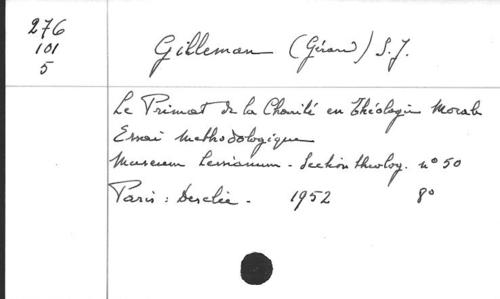 276
101
5
Gilleman (Gérard) S.J.
Le Primat de la Charité en Théologie Morale
Essai Methodologique
Museum Lessianum - Section theolog. n° 50
Paris : Desclée - 1952 8°